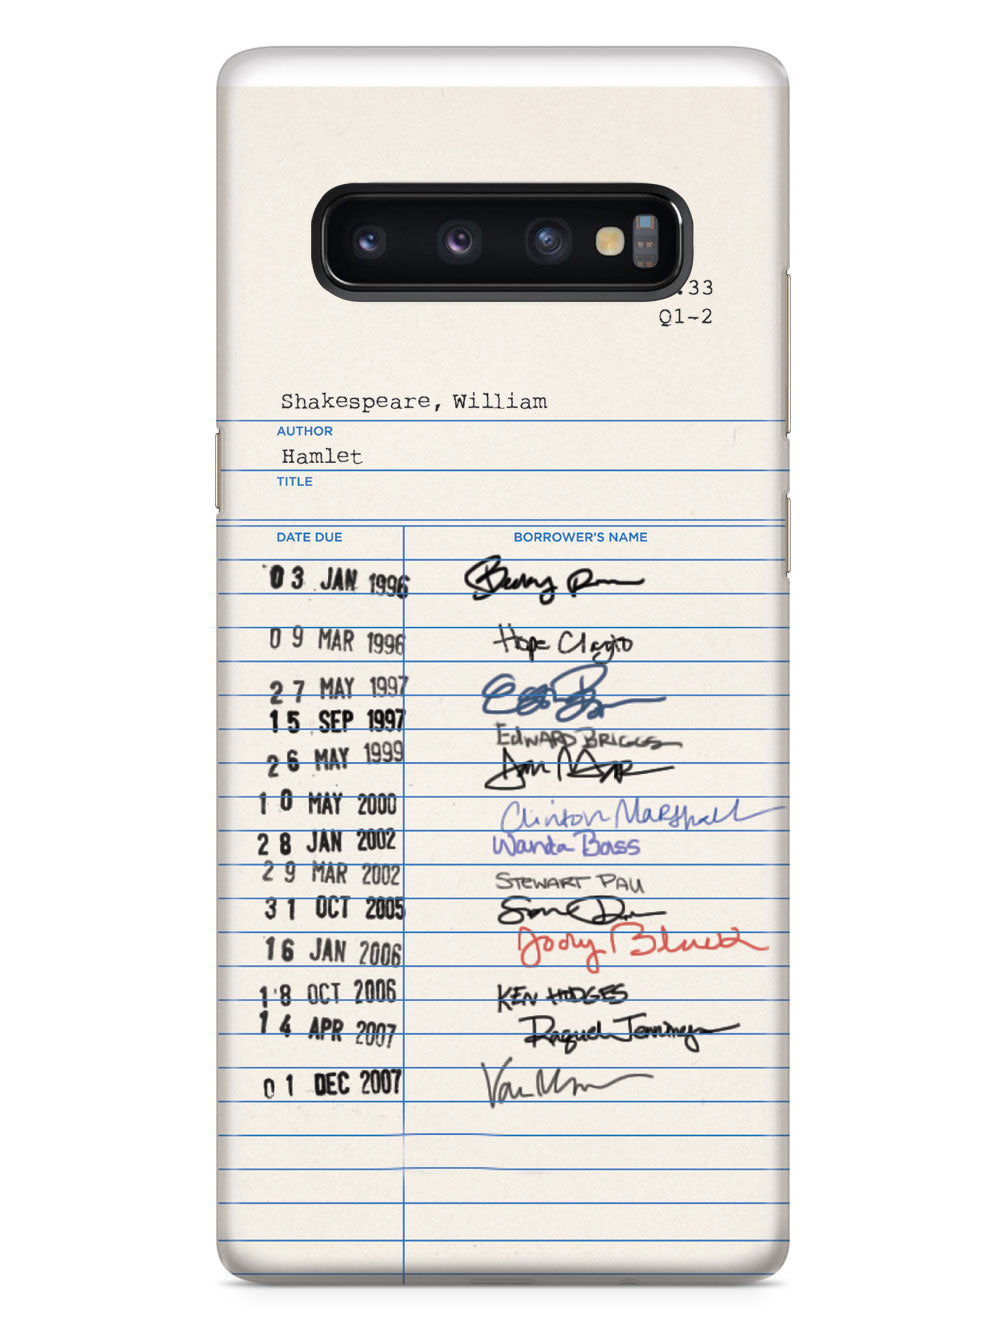 .33
Q1-2
Shakespeare, William
AUTHOR
Hamlet
TITLE
DATE DUE BORROWER'S NAME
03 JAN 1996
09 MAR 1996 Hope
27 MAY 1997
15 SEP 1997 EDWARD BRIGGS
26 MAY 1999
10 MAY 2000 Clinton Marshall
28 JAN 2002 Wanda Bass
29 MAR 2002 STEWART PAU
31 OCT 2005
16 JAN 2006 Jody Black
18 OCT 2006 KEN HODGES
14 APR 2007 Raquel Jennings
01 DEC 2007 Van